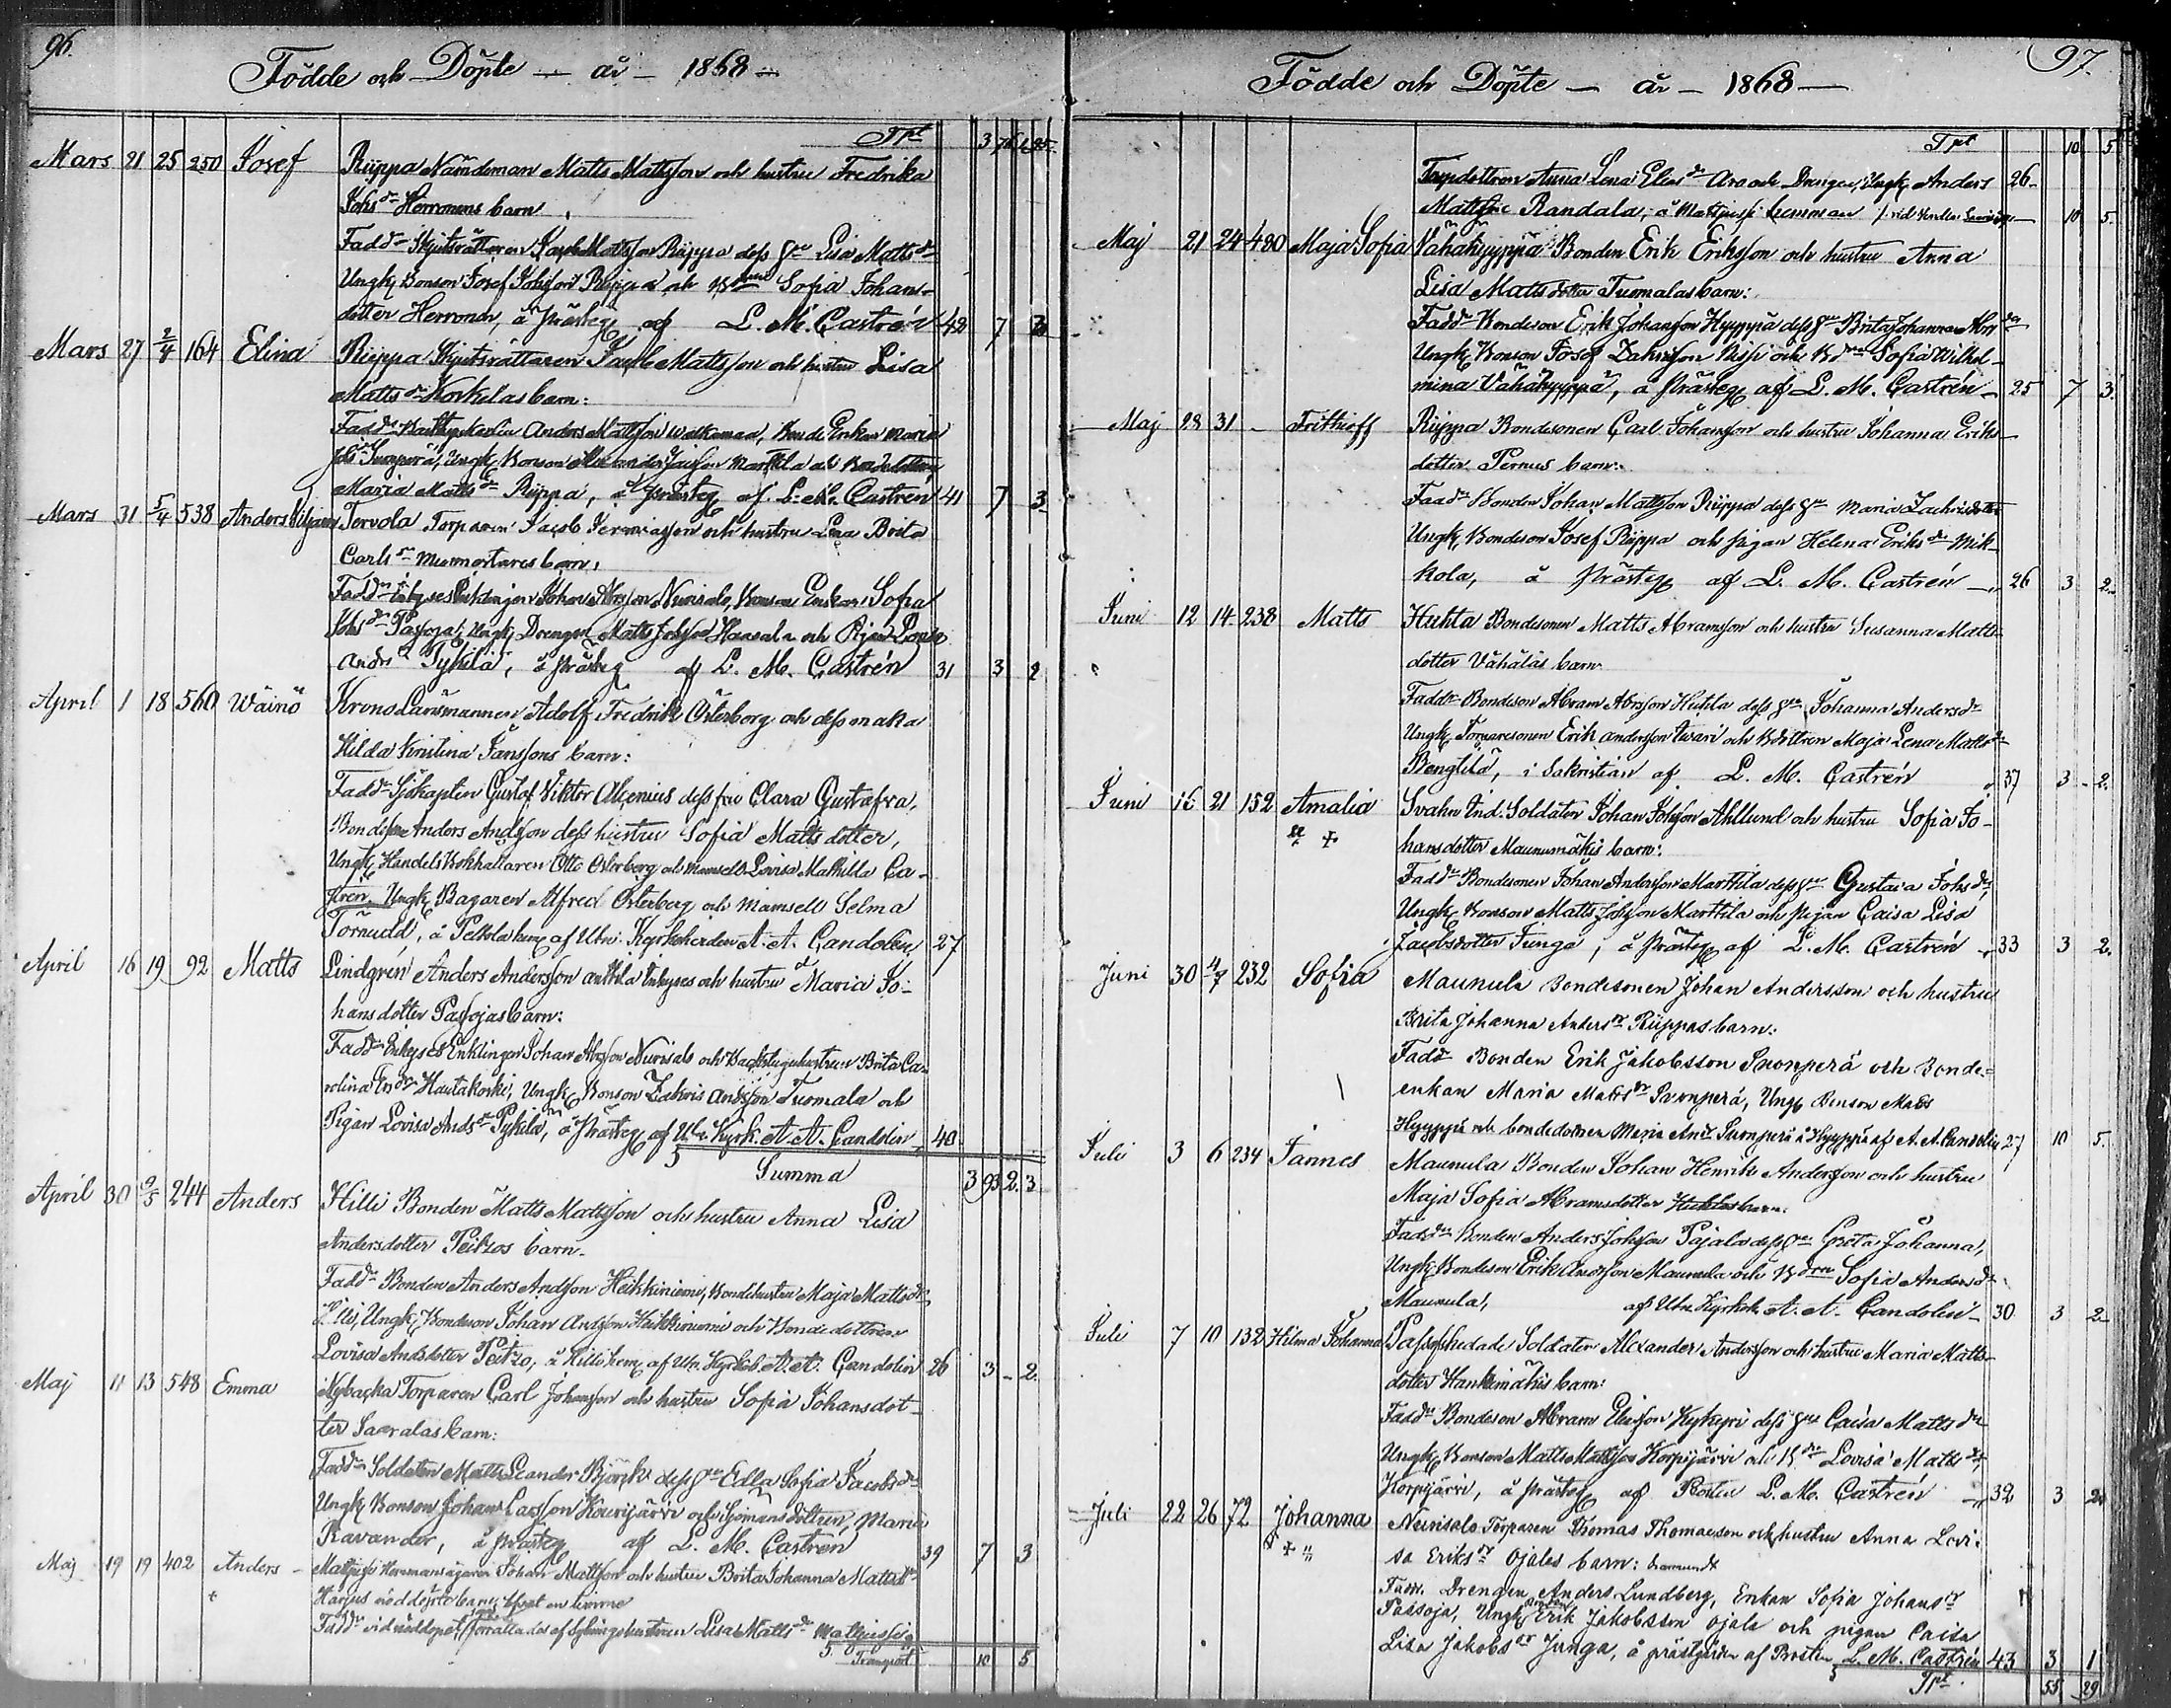 96.
Födde och Döpte — år — 1868 —
Tpt 3 76
Mars 21 25 250 Josef Riippa Nämdeman Matts Mattsson och hustru Fredrika
Johs dr Herronens barn
Fadd: Skjutsrättaren Jacob Mattsson Riippa dess hu Lisa Matts dr
Ungk, Bonson Josef Johsson Riippa och Sofia Johan-
dotter Herronen, å prästeg af L. M. Castrén 42 7
Mars 27 2/4 164 Elina Riippa Skjutsrättaren Jacob Mattsson och hustru Lisa
Matts dr Korkelas barn:
Fadd: Anders Mattsson, Bonde Enkan Maria
Ungk, Bonson Alexander Marttila och Bondedottren
Maria Matts dr Riippa, å Prästeg af L. M. Castrén 41 7 3
Mars 31 5/4 538 Anders Tervola Torparen Jacob Jeremiasson och hustru Lena Brita
Carls dr barn.
Fadd: Inhyses Enklingen Johan Abrsson Nurisalo, Enkan Sofia
Johs dr Passoja, Ungk, Drengen Matts Johsson och Pigan Lovisa
Anders dr Pykilä, å prästeg af L. M. Castrén 31 3 2
April 1 18 560 Wäinö Krono Länsmannen Adolf Fredrik Österberg och dess maka
Hilda Kristina Janssons barn:
Fadd: Sjökapten Gustaf Viktor Alcenius dess fru Clara Gustafva,
Bondeson Anders Andsson dess hustru Sofia Matts dotter,
Ungk, Handels Bokhallaren Otto Österberg och mamsell Lovisa Mathilda Ca-
stren. Ungk Bagaren Alfred Österberg och Mamsell Selma
Törnudd, å Peltola hem af Utn: Kyrkoherden A. A. Candolin 27
April 16 19 92 Matts Lindgrén Anders Andersson Anttila Inhyses och hustru Maria Jo-
hans dotter Passojas barn:
Fadd: Inhyses Enklingen Johan Abrsson Nurisalo och Backstuguhustrun Brita Ca-
rolina Ers dr Hautakoski, Ungk, Bonson Zakris Andsson Tuomala och
Pigan Lovisa Ands dr Pykilä, å Prästeg af Utn. Kyrk. A. A. Candolin 40
Summa 3 93 2. 3
April 30 9/5 244 Anders Hilli Bonden Matts Mattsson och hustru Anna Lisa
Andersdotter Peitzos barn.
Fadd: Bonden Anders Andsson Heikkiniemi, Bondehustrun Maja Matts dr
Hilli, Ungk, Bondeson Johan Andsson Heikkiniemi och Bondedottren
Lovisa Andsdotter Peitzo, å Hilli hem, af Utn. Kyrkoh A. A. Candolin 26 3 - 2.
Maj 11 13 548 Emma Nybacka Torparen Carl Johansson och hustru Sofia Johansdot-
ter Saaralas barn:
Fadd: Soldaten Matts Leander Björck dess hu Edla Sofia Jacobs dr
Ungk, Bonson Johan Larsson Kourijärvi och Sjömansdottren, Maria
Ravander, å prästeg af L. M. Castrén 39 7 3
Maj 19 19 402 Anders Hemmansägaren Johan Mattsson och hustru Brita Johanna Mattsdr
+ Harjus nöddöpte barn;
Fadd: vid nöddopet, förrättades af Lisa Matts dr
Transport 10 5
97.
Födde och Döpte — år — 1868 —
Tpt 10 5
Anna Lena Elias dr och Drengen, Ungk, Anders 26
Mattsson Randala, å hemman 10 5.
Maj 21 24 480 Maja Sofia Vähähyyppä Bonden Erik Eriksson och hustru Anna
Lisa Mattsdotter Tuomalas barn:
Fadd: Bondeson Erik Johansson Hyyppä dess hu Brita Johanna
Ungk, Bonson Josef Zakrisson och Sofia Wilhel-
mina Vähähyyppä, å prästeg af L. M. Castrén 25 7 3.
Maj 28 31 - Frithioff Riippa Bondesonen Carl Johansson och hustru Johanna Eriks-
dotter Pernus barn:
Fadd: Bonden Johan Mattsson Riippa dess hu Maria Zachrisdotter
Ungk, Bondeson Josef Riippa och pigan Helena Eriks dr Mik-
kola, å prästeg af L. M. Castrén 26 3 2.
Juni 12 14 238 Matts Huhta Bondesonen Matts Abramsson och hustru Susanna Matts-
dotter Vähäläs barn
Fadd: Bondeson Abram Abrsson Huhta dess hu, Johanna Anders dr
Ungk, Torparesonen Erik Andersson och Bdottren Maja Lena Matts dr
Bengtilä, i Sakristian af L. M. Castrén 37 3 - 2.
Juni 16 21 152 Amalia Svahn Ind. Soldaten Johan Johsson Ahllund och hustru Sofia Jo-
hansdotter Maunumäkis barn:
Fadd: Bondesonen Johan Andersson Marttila dess hu Gustava Johs dr,
Ungk, Bonson Matts Johsson Marttila och pigan Caisa Lisa
Jacobsdotter Junga, å prästeg af L. M. Castrén 33 3 2.
Juni 30 4/7 232 Sofia Maunula Bondesonen Johan Andersson och hustru
Brita Johanna Anders dr Riippas barn.
Fadd: Bonden Erik Jakobsson Suonperä och Bonde-
enkan Maria Matts dr Suonperä, Ungk Bonson Matts
Hyyppä och bondedottren Maria And. Suonperä å Hyyppä af A. A. Candolin 27 10 5.
Juli 3 6 234 Jannes Maunula Bonden Johan Henrik Andersson och hustru
Maja Sofia Abramsdotter Huhtas barn.
Fadd: Bonden Anders Johsson Pajala dess hu Greta Johanna,
Ungk, Bondeson Erik Andsson Maunula och Sofia Anders dr
Maunula, af Utn Kyrkoh A. A. Candolin 30 3 2
Juli 7 10 132 Hilma Johanna Soldaten Alexander Andersson och hustru Maria Matts-
dotter Hankimäkis barn:
Fadd: Bondeson Abram Eliasson Kykyri dess hu Caisa Matts dr
Ungk, Bonson Matts Mattsson Korpijärvi och Lovisa Matts dr,
Korpijärvi, å prästeg af Rosten L. M. Castrén 32 3 2.
Juli 22 26 72 Johanna Nurisalo Torparen Thomas Thomasson och hustru Anna Lovi-
sa Eriks dr Ojalas barn:
Fadd. Drengen Anders Lundberg, Enkan Sofia Johans dr
Passoja, Ungk Erik Jakobsson Ojala och pigan Caisa
Lisa Jakobs dr Junga, å prästgården af Prosten L. M. Castrén 43 3 1
Tpt 55 29